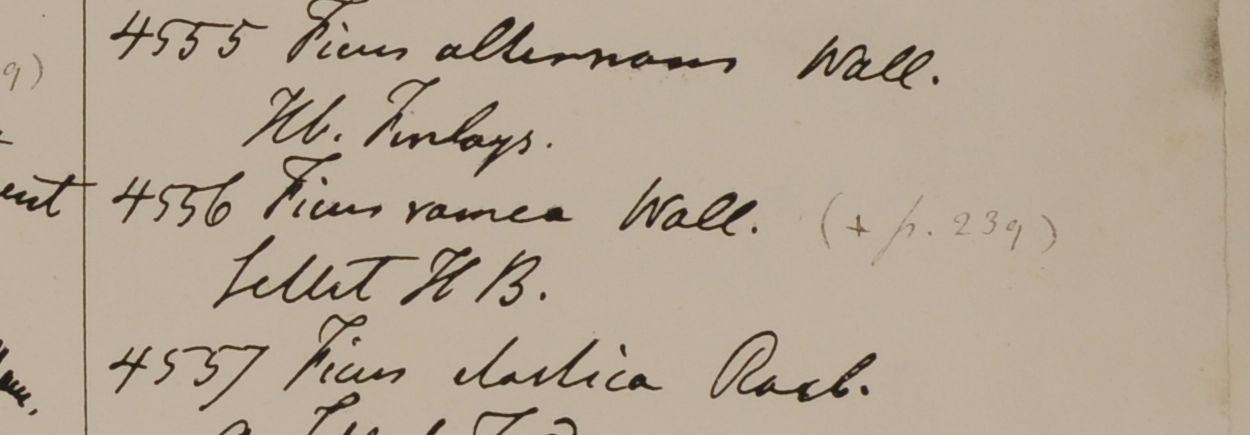 9)
4555 Ficus alternans Wall.
Hb. Finlays.
4556 Ficus ramea Wall. (+ p. 239)
Sillet H B.
4557 Ficus elastica Roxb.